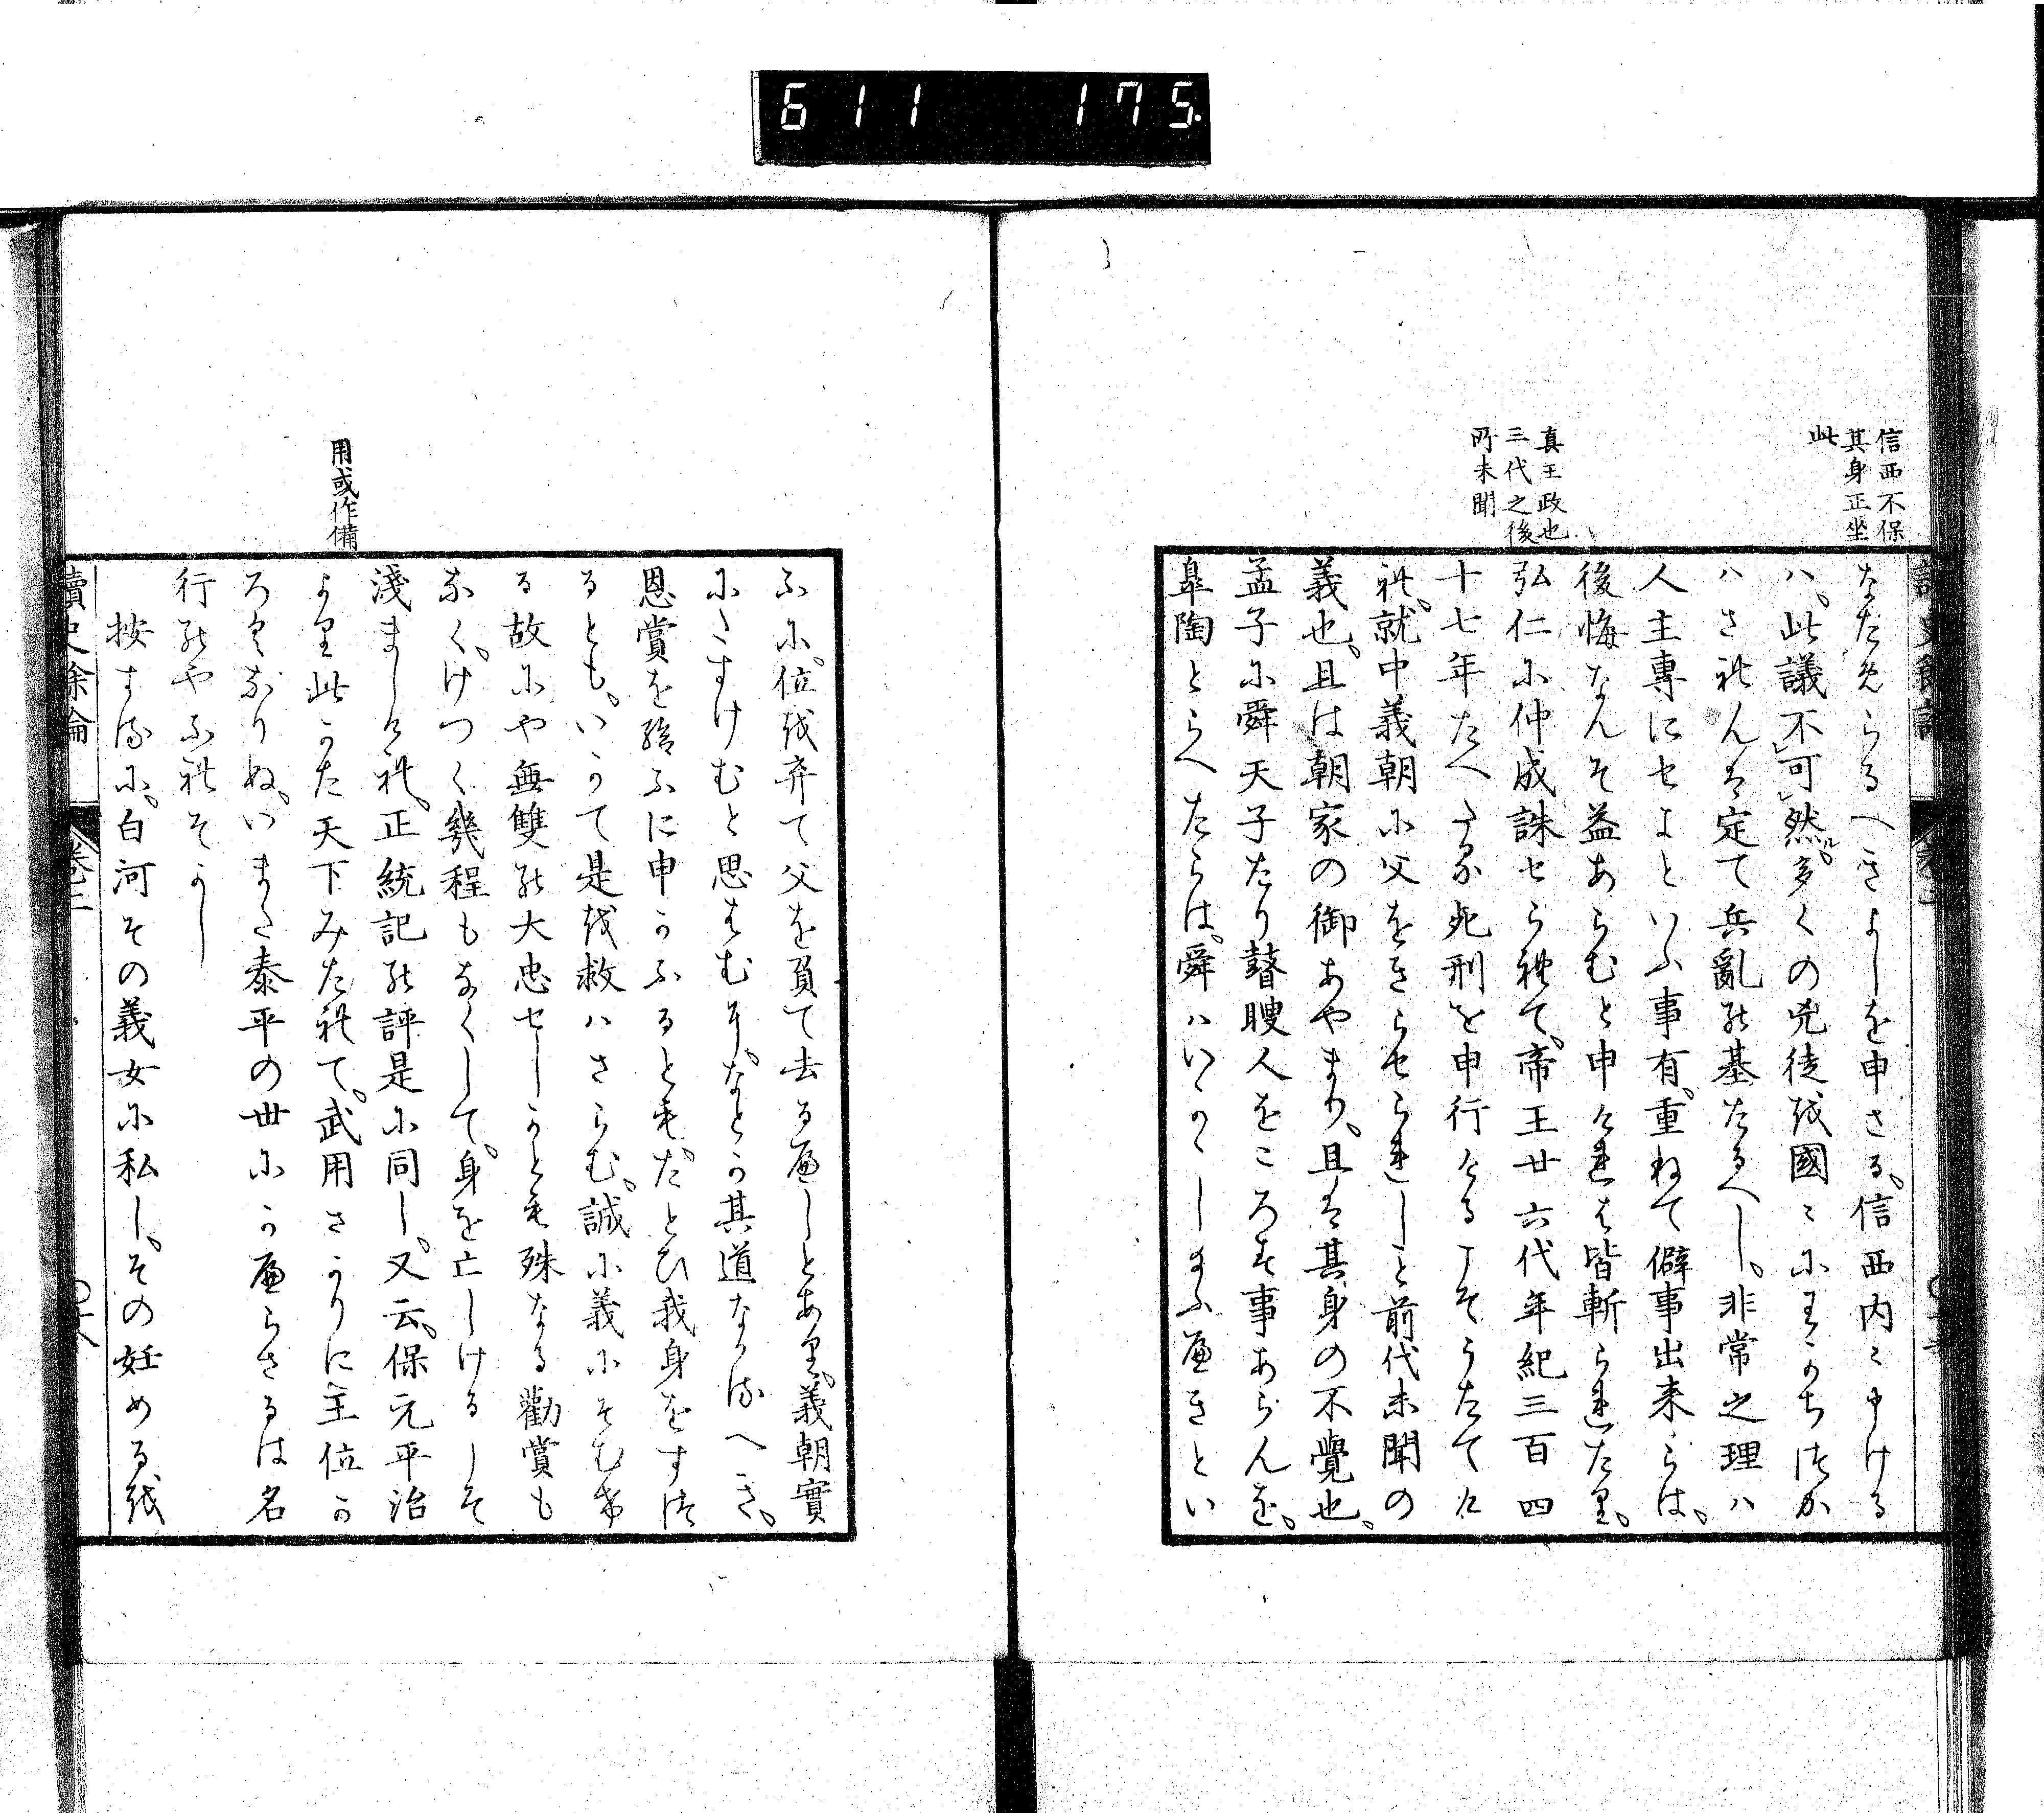 611 175.
信西不保
其身正坐
此
真王政也
三代之後
所未聞
なためらるへきよしを申さる、信西内ゝ申ける
ハ、此議不可然、多くの兇徒を國ゝにわかちつか
ハされんは定て兵亂の基たるへし、非常之理ハ
人主專にせよといふ事有、重ねて僻事出来らは、
後悔なんそ益あらむと申けれは皆斬られたり、
弘仁に仲成誅せられて、帝王廿六代年紀三百四
十七年たへたる死刑を申行けるこそうたてけ
れ、就中義朝に父をきらせられしこと前代未聞の
義也、且は朝家の御あやまり、且は其身の不覺也、
孟子に舜天子たり瞽瞍人をころす事あらんを、
皐陶とらへたらは、舜ハいかゝしまふへきとい
ふに、位を弃て父を負て去るへしとあり、義朝實
にたすけむと思はむに、なとか其道なかるへき、
恩賞を給ふに申かふるとも、たとひ我身をすつ
るとも、いかて是を救ハさらむ、誠に義にそむけ
る故にや無雙の大忠せしかとも殊なる勸賞も
なく、けつく幾程もなくして、身を亡しけるこそ
淺ましけれ、正統記の評是に同し、又云、保元平治
より此かた天下みたれて、武用さかりに王位か
ろくなりぬ、いまた泰平の世にかへらさるは名
行のやふれそかし
按するに、白河その義女に私し、その妊めるを
用或作備
讀史餘論
卷二